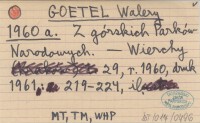 GOETEL Walery
1960 a. Z górskich Parków
Narodowych. — Wierchy
29, r. 1960, druk
1961. s. 219-224,
MT, TM, WHP